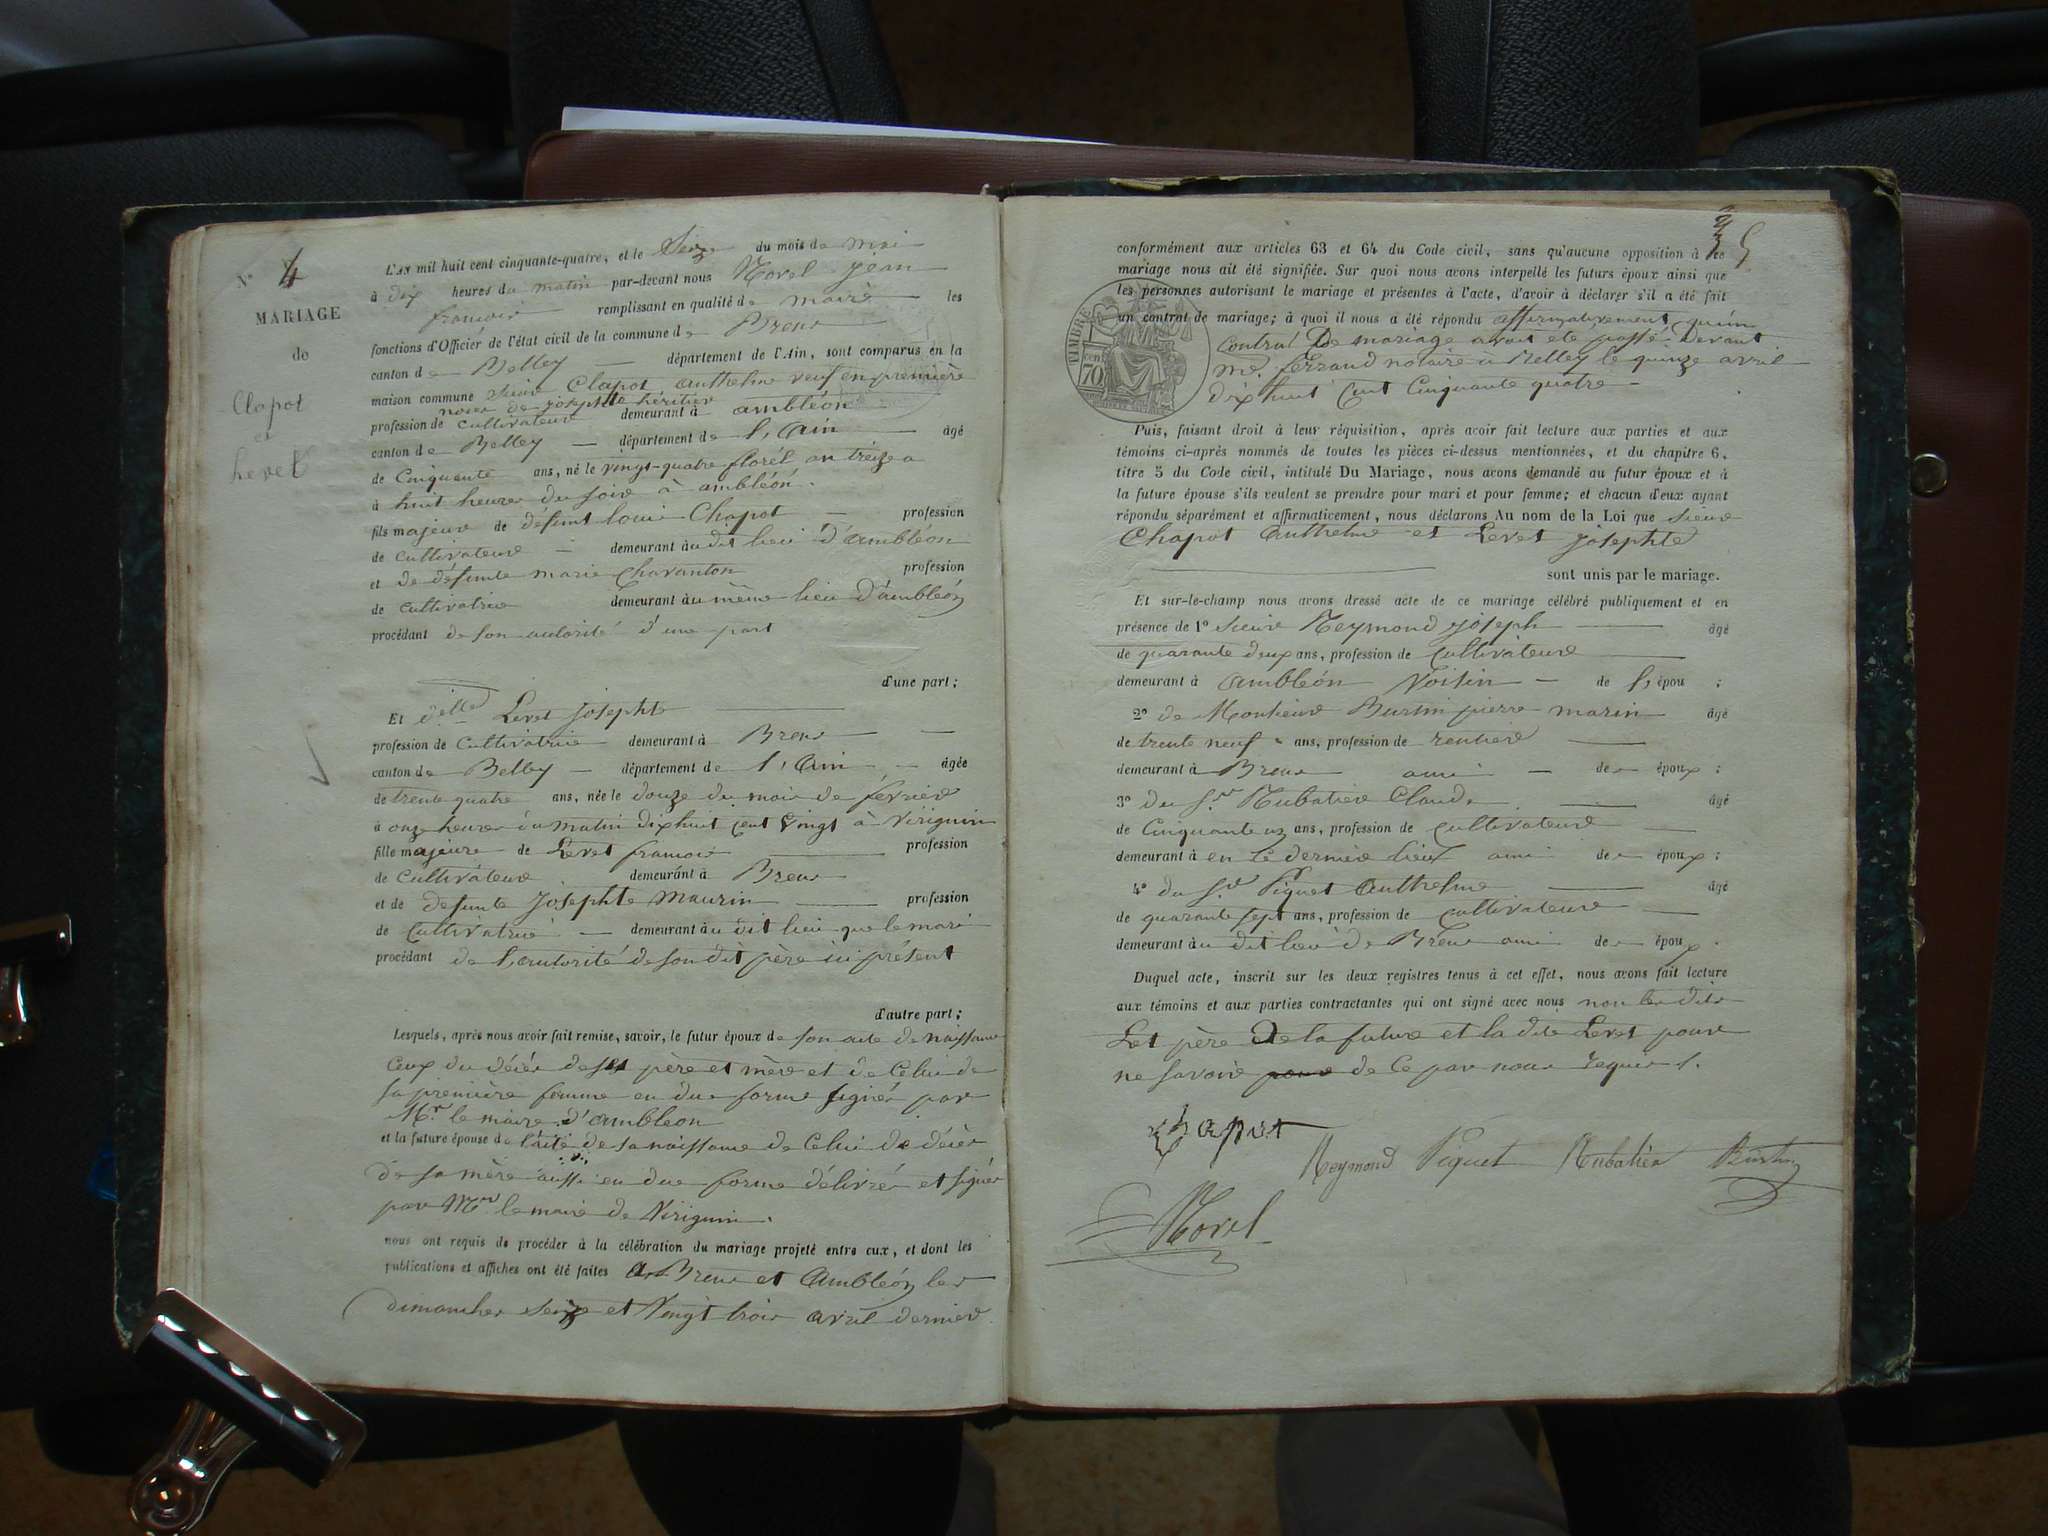 N° 4
MARIAGE
de
Clapot
et
Levet
L'AN mil huit cent cinquante-quatre, et le Seize du mois de mai
à dix heures du matin par-devant nous Morel jean
francois remplissant en qualité de maire les
fonctions d'Officier de l'état civil de la commune de Brens
canton de Belley département de l'Ain, sont comparus en la
maison commune Sieur Clapot Anthelme veuf en première
noces de josephte héritier
profession de cultivateur demeurant à ambléon
canton de Belley département de l'Ain âgé
de Cinquante ans, né le vingt-quatre floréal an treize
à huit heures du soir à ambléon.
fils majeur de défunt louis Chapot profession
de cultivateur demeurant au dit lieu d'ambléon
et de défunte marie Chavanton profession
de cultivatrice demeurant au même lieu d'ambléon
procédant de son autorité d'une part
d'une part;
Et delle Levet Josephte
profession de Cultivatrice demeurant à Brens
canton de Belley département de l'Ain âgée
de trente quatre ans, née le douze du mois de février
à onze heures du matin dix huit cent vingt à Virignin
fille majeure de Levet francois profession
de Cultivateur demeurant à Brens
et de defunte Josephte Maurin profession
de Cultivatrice demeurant au dit lieu que le mari
procédant de l'autorité de son dit père ici présent
d'autre part;
Lesquels, après nous avoir fait remise, savoir, le futur époux de son acte de naissance
Ceux du décès de ses père et mère et de Celui de
sa première femme en due forme signés par
Mr. le maire d'ambléon
et la future épouse de l'acte de sa naissance de Celui de décès
de sa mère aussi en due forme délivrés et signés
par Mr le maire de Virignin.
nous ont requis de procéder à la célébration du mariage projeté entre eux, et dont les
publications et affiches ont été faites à Brens et Ambléon les
dimanches Seize et Vingt trois avril dernier
conformément aux articles 63 et 64 du Code civil, sans qu'aucune opposition à ce
mariage nous ait été signifiée. Sur quoi nous avons interpellé les futurs époux ainsi que
les personnes autorisant le mariage et présentes à l'acte, d'avoir à déclarer s'il a été fait
un contrat de mariage; à quoi il nous a été répondu affirmativement qu'un
Contrat De mariage avoit été passé Devant
me. ferrand notaire à Belley le quinze avril
dix huit Cent Cinquante quatre
TIMBRE
70 cent
Puis, faisant droit à leur réquisition, après avoir fait lecture aux parties et aux
témoins ci-après nommés de toutes les pièces ci-dessus mentionnées, et du chapitre 6,
titre 5 du Code civil, intitulé Du Mariage, nous avons demandé au futur époux et à
la future épouse s'ils veulent se prendre pour mari et pour femme; et chacun d'eux ayant
répondu séparément et affirmativement, nous déclarons Au nom de la Loi que Sieur
Chapot Anthelme et Levet Josephte
sont unis par le mariage.
Et sur-le-champ nous avons dressé acte de ce mariage célébré publiquement et en
présence de 1° Sieur Reymond joseph âgé
de quarante deux ans, profession de Cultivateur
demeurant à ambléon Voisin de l'épou ;
2° de Monsieur Burtin pierre marin âgé
de trente neuf ans, profession de rentier
demeurant à Brens ami des époux;
3° du Sr Rubatier Claude âgé
de Cinquante ans, profession de Cultivateur
demeurant à en ce dernier lieu ami des époux;
4° du Sr Piquet Anthelme âgé
de quarante sept ans, profession de Cultivateur
demeurant au dit lieu de Brens ami des époux.
Duquel acte, inscrit sur les deux registres tenus à cet effet, nous avons fait lecture
aux témoins et aux parties contractantes qui ont signé avec nous non les dits
Let père De la future et la dite Levet pour
ne savoir pour de ce par nous requis.
Chapot
Reymond Piquet Rubatier Burtin
Morel